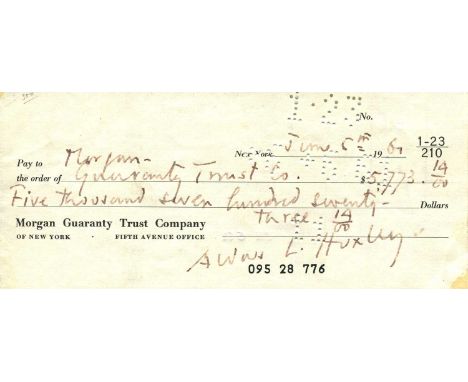 No.
New York June 5th 196 1-23
Pay to Morgan- 210
the order of Guaranty Trust Co. $5,773.14/00
Five thousand seven hundred seventy-
three 14/00 Dollars
Morgan Guaranty Trust Company
OF NEW YORK · FIFTH AVENUE OFFICE
Aldous L. Huxley
095 28 776